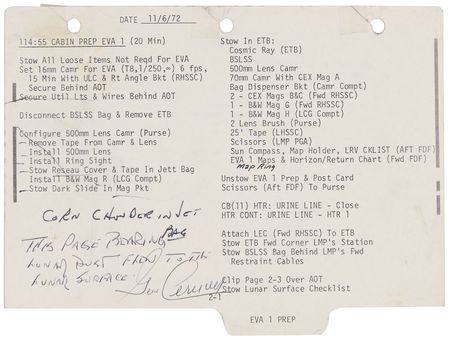 DATE 11/6/72
114:55 CABIN PREP EVA 1 (20 Min)
Stow All Loose Items Not Reqd For EVA
Set 16mm Camr For EVA (T8,1/250,∞) 6 fps,
15 Min With ULC & Rt Angle Bkt (RHSSC)
Secure Behind AOT
Secure Util Lts & Wires Behind AOT
Disconnect BSLSS Bag & Remove ETB
Configure 500mm Lens Camr (Purse)
Remove Tape From Camr & Lens
Install 500mm Lens
Install Ring Sight
Stow Reseau Cover & Tape In Jett Bag
Install B&W Mag R (LCG Compt)
Stow Dark Slide In Mag Pkt
CORN CHOWDER IN JET
BAG
THIS PAGE BEARING
LUNAR DUST FLEW TO THE
LUNAR SURFACE.
Gene Cernan
2-1
Stow In ETB:
Cosmic Ray (ETB)
BSLSS
500mm Lens Camr
70mm Camr With CEX Mag A
Bag Dispenser Bkt (Camr Compt)
2 - CEX Mags B&C (Fwd RHSSC)
1 - B&W Mag G (Fwd RHSSC)
1 - B&W Mag H (LCG Compt)
2 Lens Brush (Purse)
25' Tape (LHSSC)
Scissors (LMP PGA)
Sun Compass, Map Holder, LRV CKLIST (Aft FDF)
EVA 1 Maps & Horizon/Return Chart (Fwd FDF)
Map Ring
Unstow EVA 1 Prep & Post Card
Scissors (Aft FDF) To Purse
CB(11) HTR: URINE LINE - Close
HTR CONT: URINE LINE - HTR 1
Attach LEC (Fwd RHSSC) To ETB
Stow ETB Fwd Corner LMP's Station
Stow BSLSS Bag Behind LMP's Fwd
Restraint Cables
Clip Page 2-3 Over AOT
Stow Lunar Surface Checklist
EVA 1 PREP